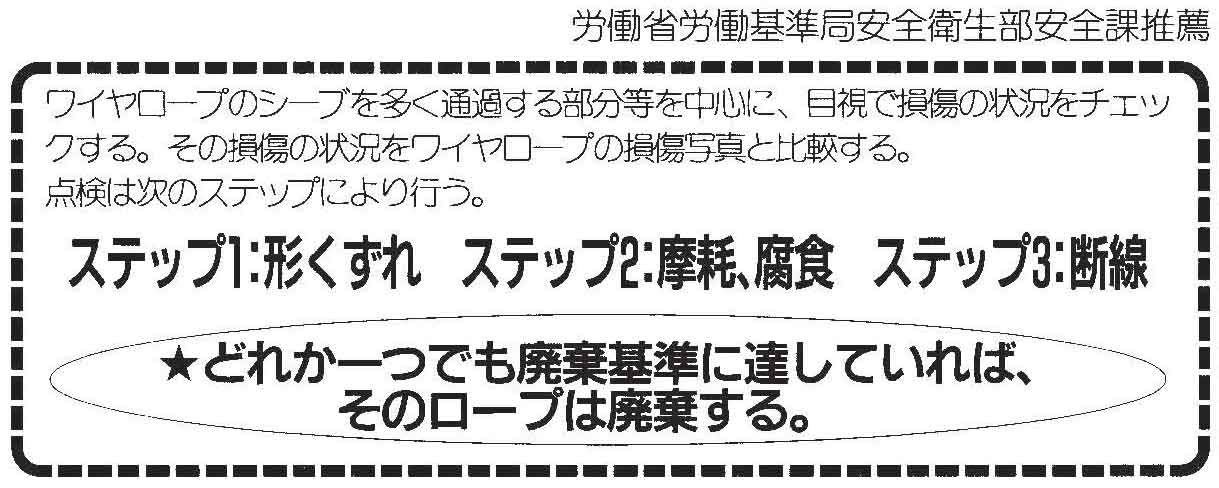 労働省労働基準局安全衛生部安全課推薦
ワイヤロープのシーブを多く通過する部分等を中心に、目視で損傷の状況をチェッ
クする。その損傷の状況をワイヤロープの損傷写真と比較する。
点検は次のステップにより行う。
ステップ1:形くずれ ステップ2:摩耗、腐食 ステップ3:断線
★どれか一つでも廃棄基準に達していれば、
そのロープは廃棄する。